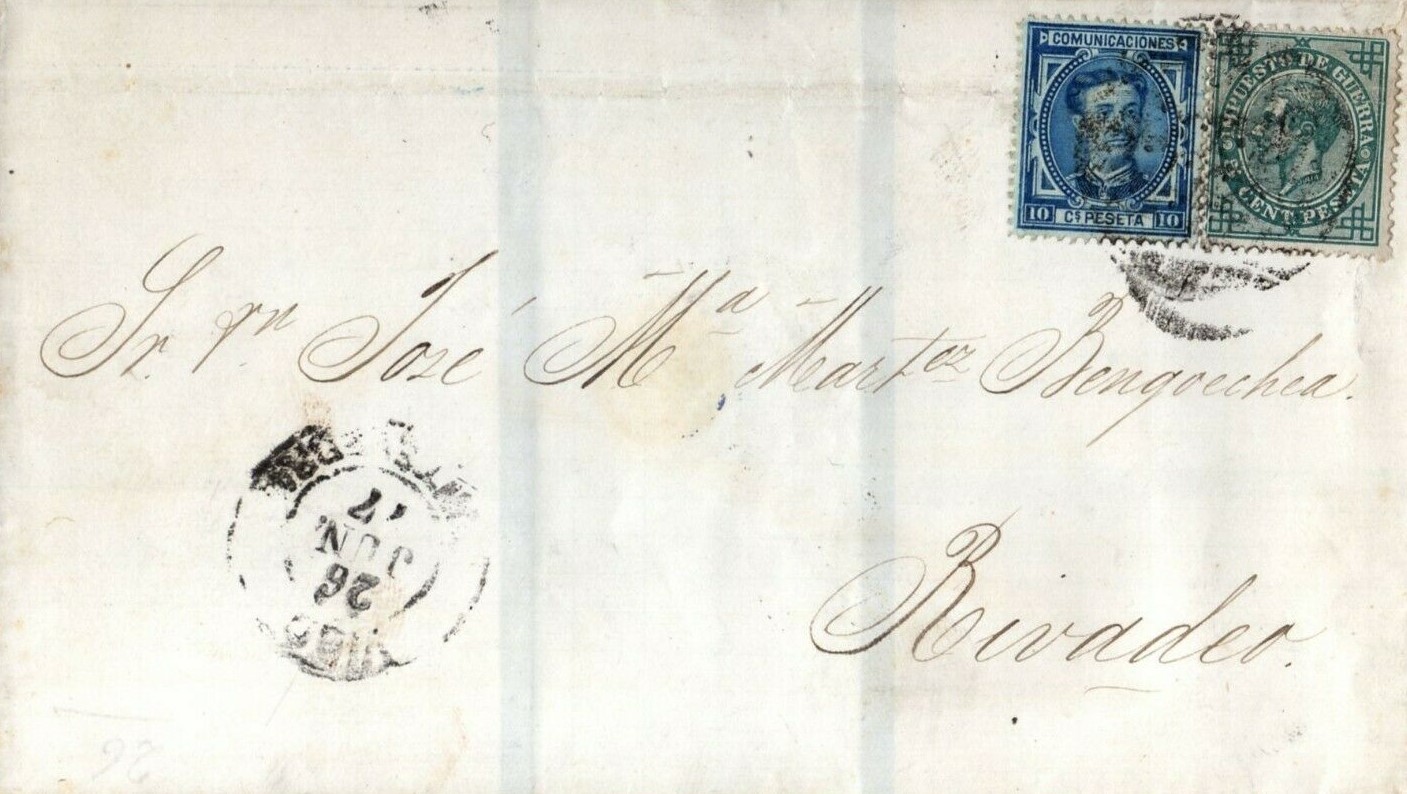 COMUNICACIONES
10 Cs PESETA 10
IMPUESTO DE GUERRA
5 CENT. PESETA
Sr. Dn José Ma Martez Bengoechea.
Rivadeo.
26
JUN.
77
VIGO
26